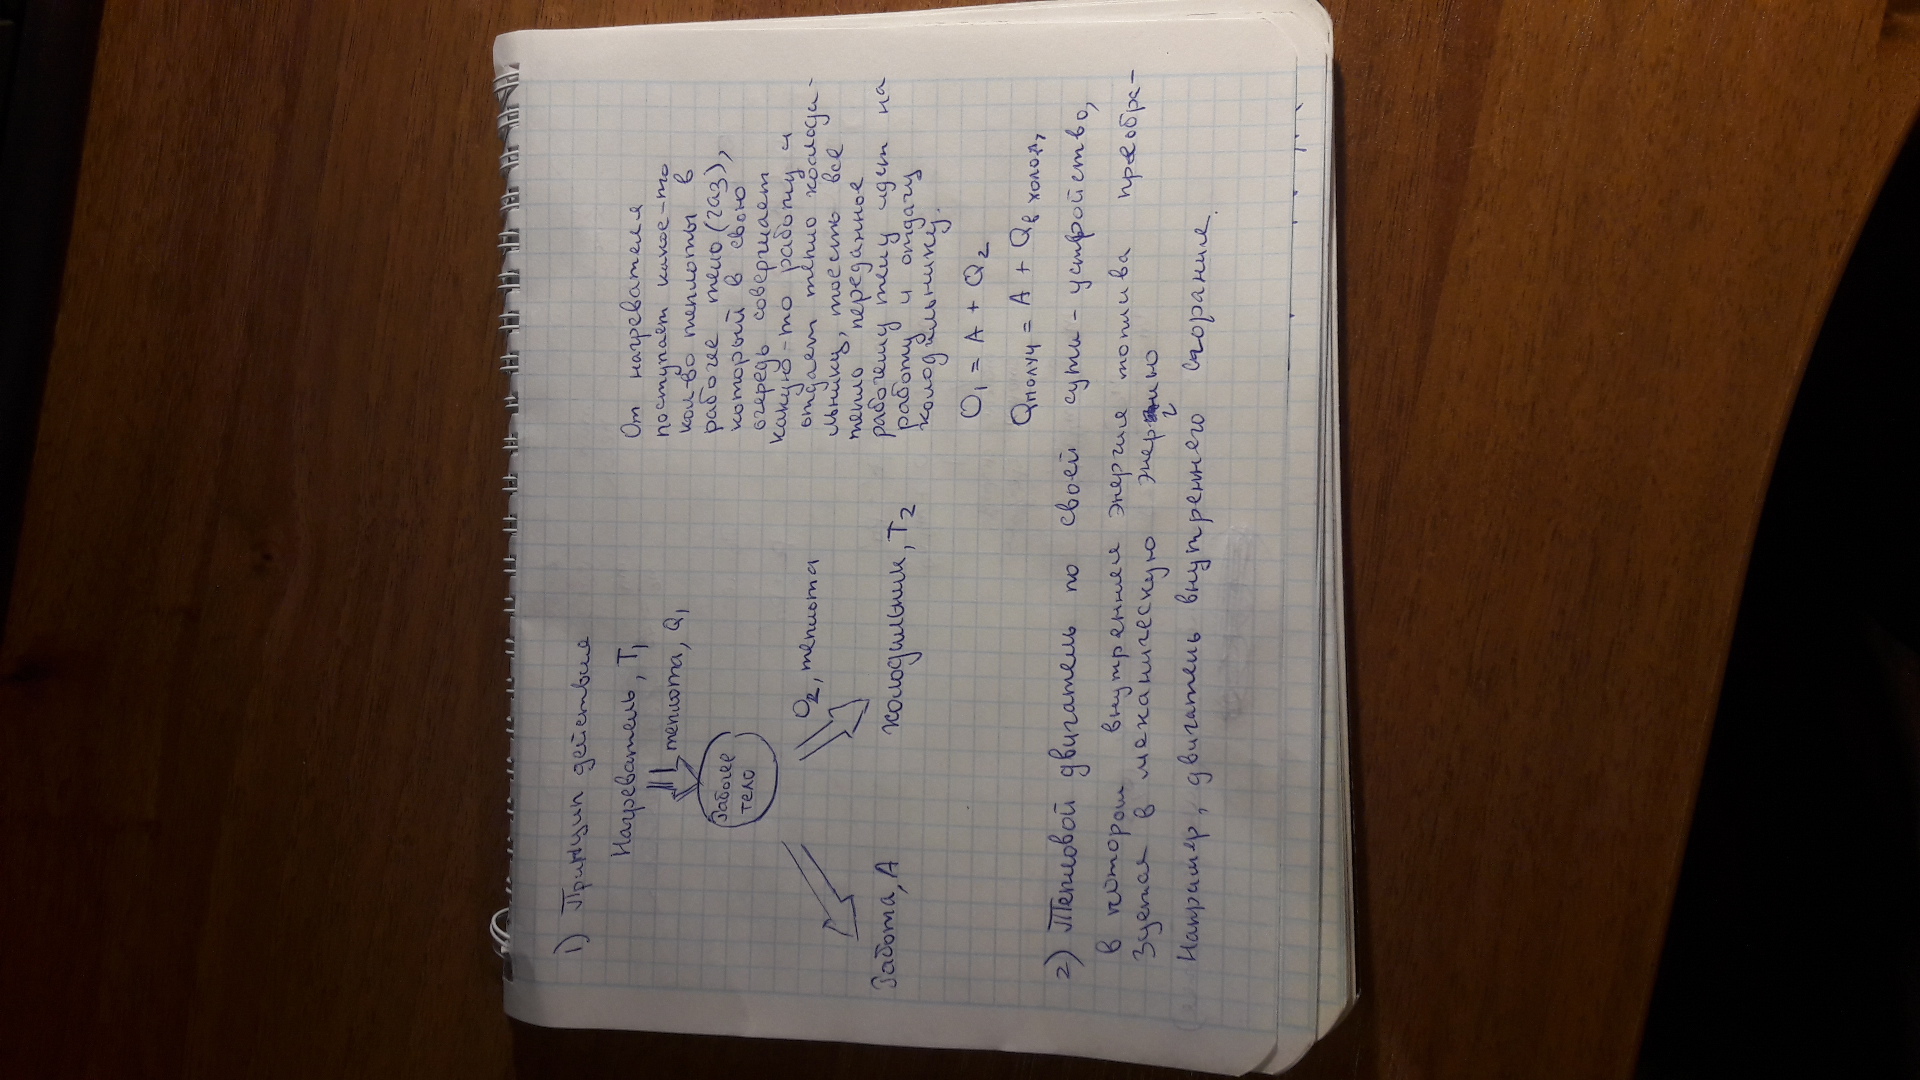 1) Принцип действия
Нагреватель, T1
теплота, Q1
Рабочее
тело
Q2, теплота
Работа, A
холодильник, T2
От нагревателя
поступает какое-то
кол-во теплоты в
рабочее тело (газ),
который в свою
очередь совершает
какую-то работу и
отдает тепло холоди-
льнику, то есть все
тепло переданное
рабочему телу идет на
работу и отдачу
холодильнику.
Q1 = A + Q2
Qполуч = A + Qв холод,
2) Тепловой двигатель по своей сути - устройство,
в котором внутренняя энергия топлива преобра-
зуется в механическую энергию
Например, двигатель внутреннего сгорания.